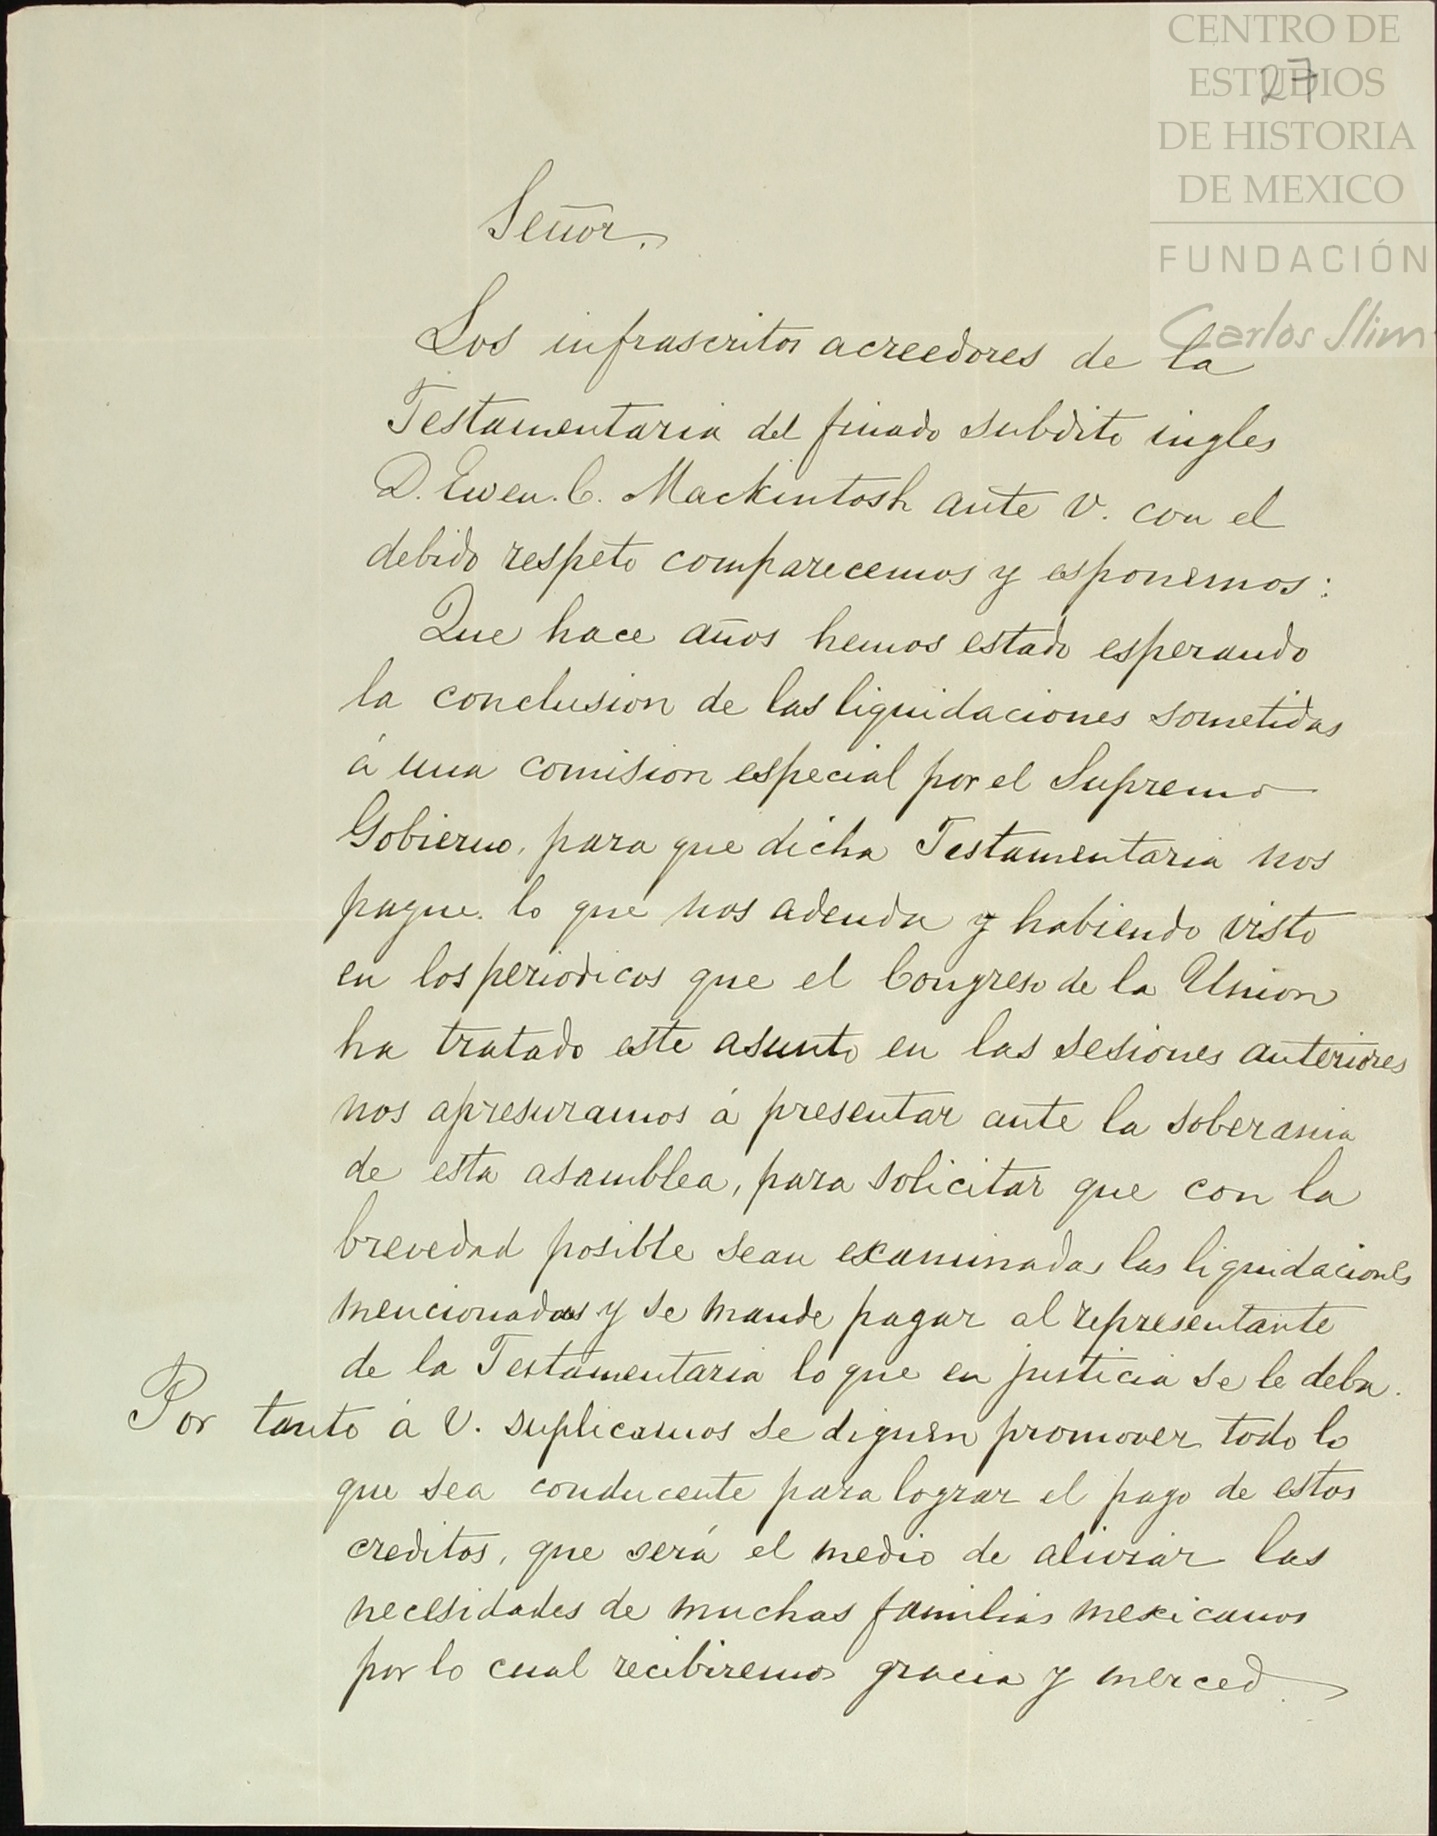 CENTRO DE
ESTUDIOS
DE HISTORIA
DE MEXICO
FUNDACIÓN
Carlos Slim
27
Señor.
Los infrascritos acreedores de la
Testamentaria del finado subdito ingles
D. Ewen. C. Mackintosh ante V. con el
debido respeto comparecemos y esponemos:
Que hace años hemos estado esperando
la conclusion de las liquidaciones sometidas
á una comision especial por el Supremo
Gobierno, para que dicha Testamentaria nos
pague. lo que nos adeuda y habiendo visto
en los periodicos que el Congreso de la Union
ha tratado este asunto en las sesiones anteriores
nos apresuramos á presentar ante la soberania
de esta asamblea, para solicitar que con la
brevedad posible sean examinadas las liquidaciones
mencionadas y se mande pagar al representante
de la Testamentaria lo que en justicia se le deba.
Por tanto á V. suplicamos se dignen promover todo lo
que sea conducente para lograr el pago de estos
creditos, que será el medio de aliviar las
necesidades de muchas familias mexicanas
por lo cual recibiremos gracia y merced.